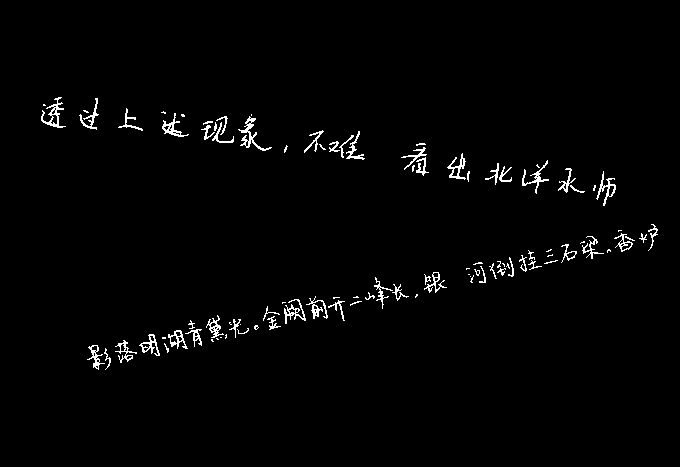 透过上述现象，不难看出北洋水师
影落明湖青黛光。金阙前开二峰长，银河倒挂三石梁。香炉